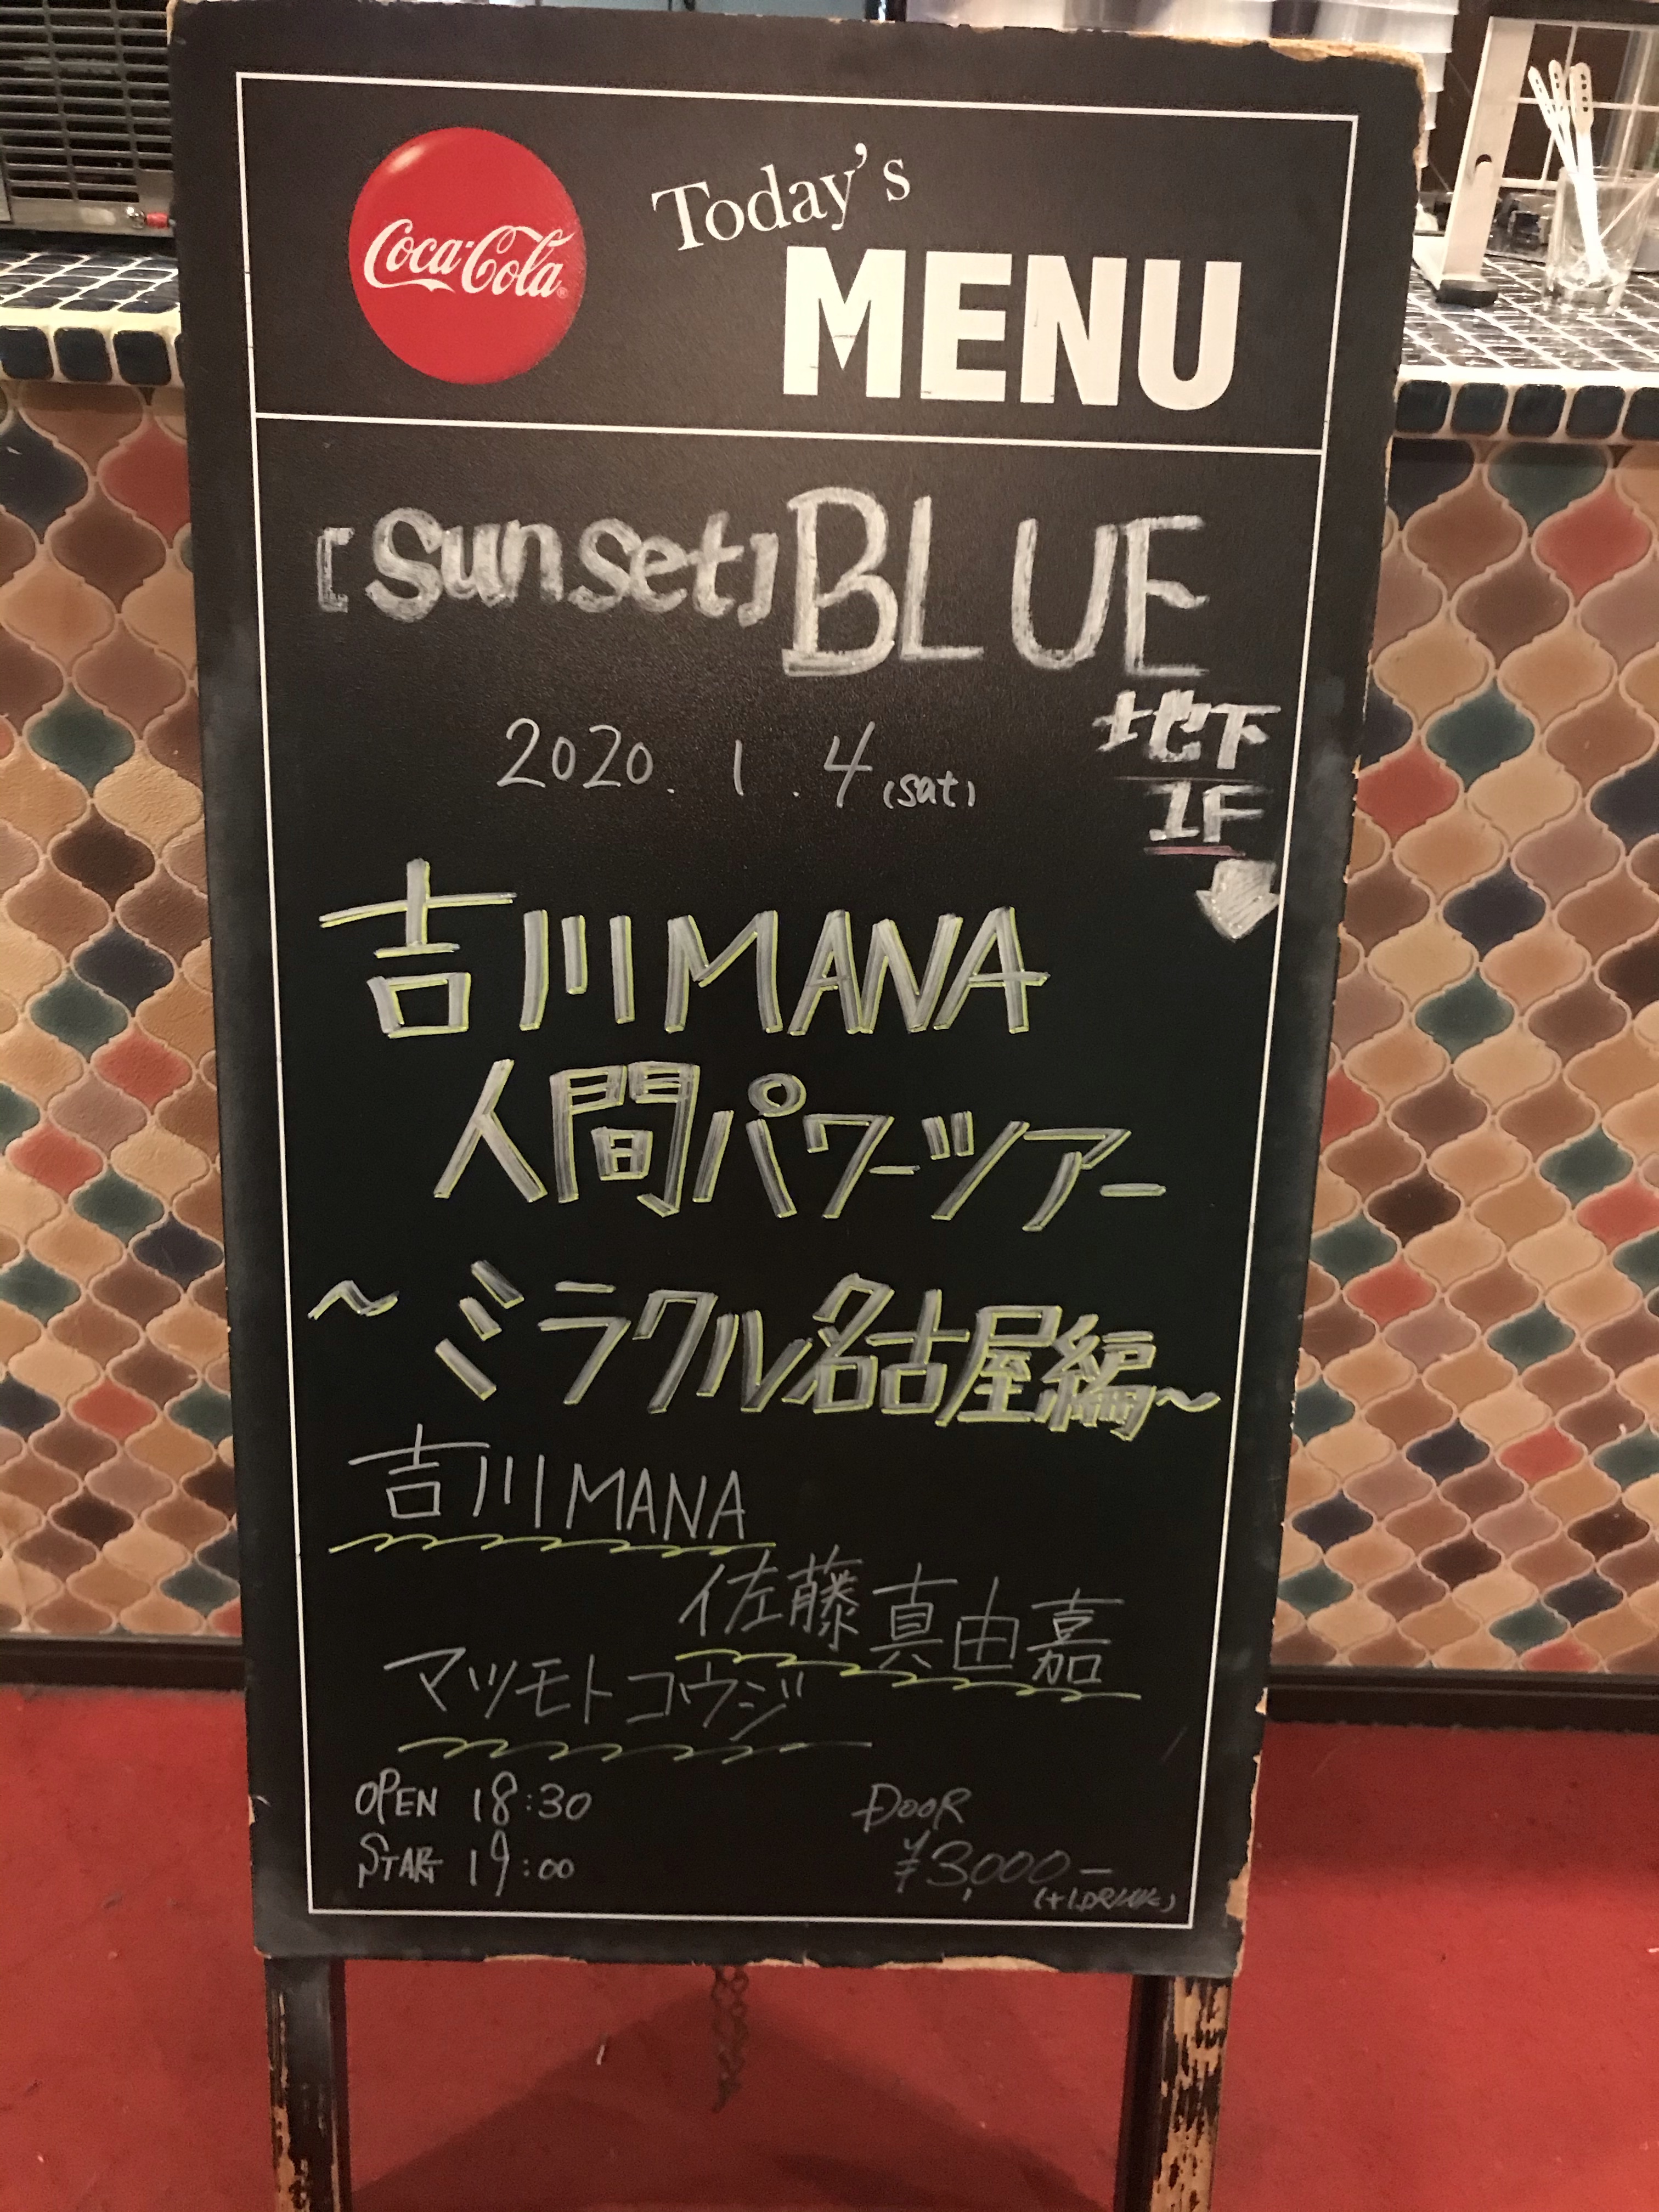 Coca-Cola
Today's
MENU
[Sunset] BLUE
地下
1F
2020. 1. 4 (sat)
吉川MANA
人間パワーツアー
～ミラクル名古屋編～
吉川MANA
佐藤真由嘉
マツモトコウジ
OPEN 18:30
START 19:00
DOOR
¥3,000-
(+1DRINK)